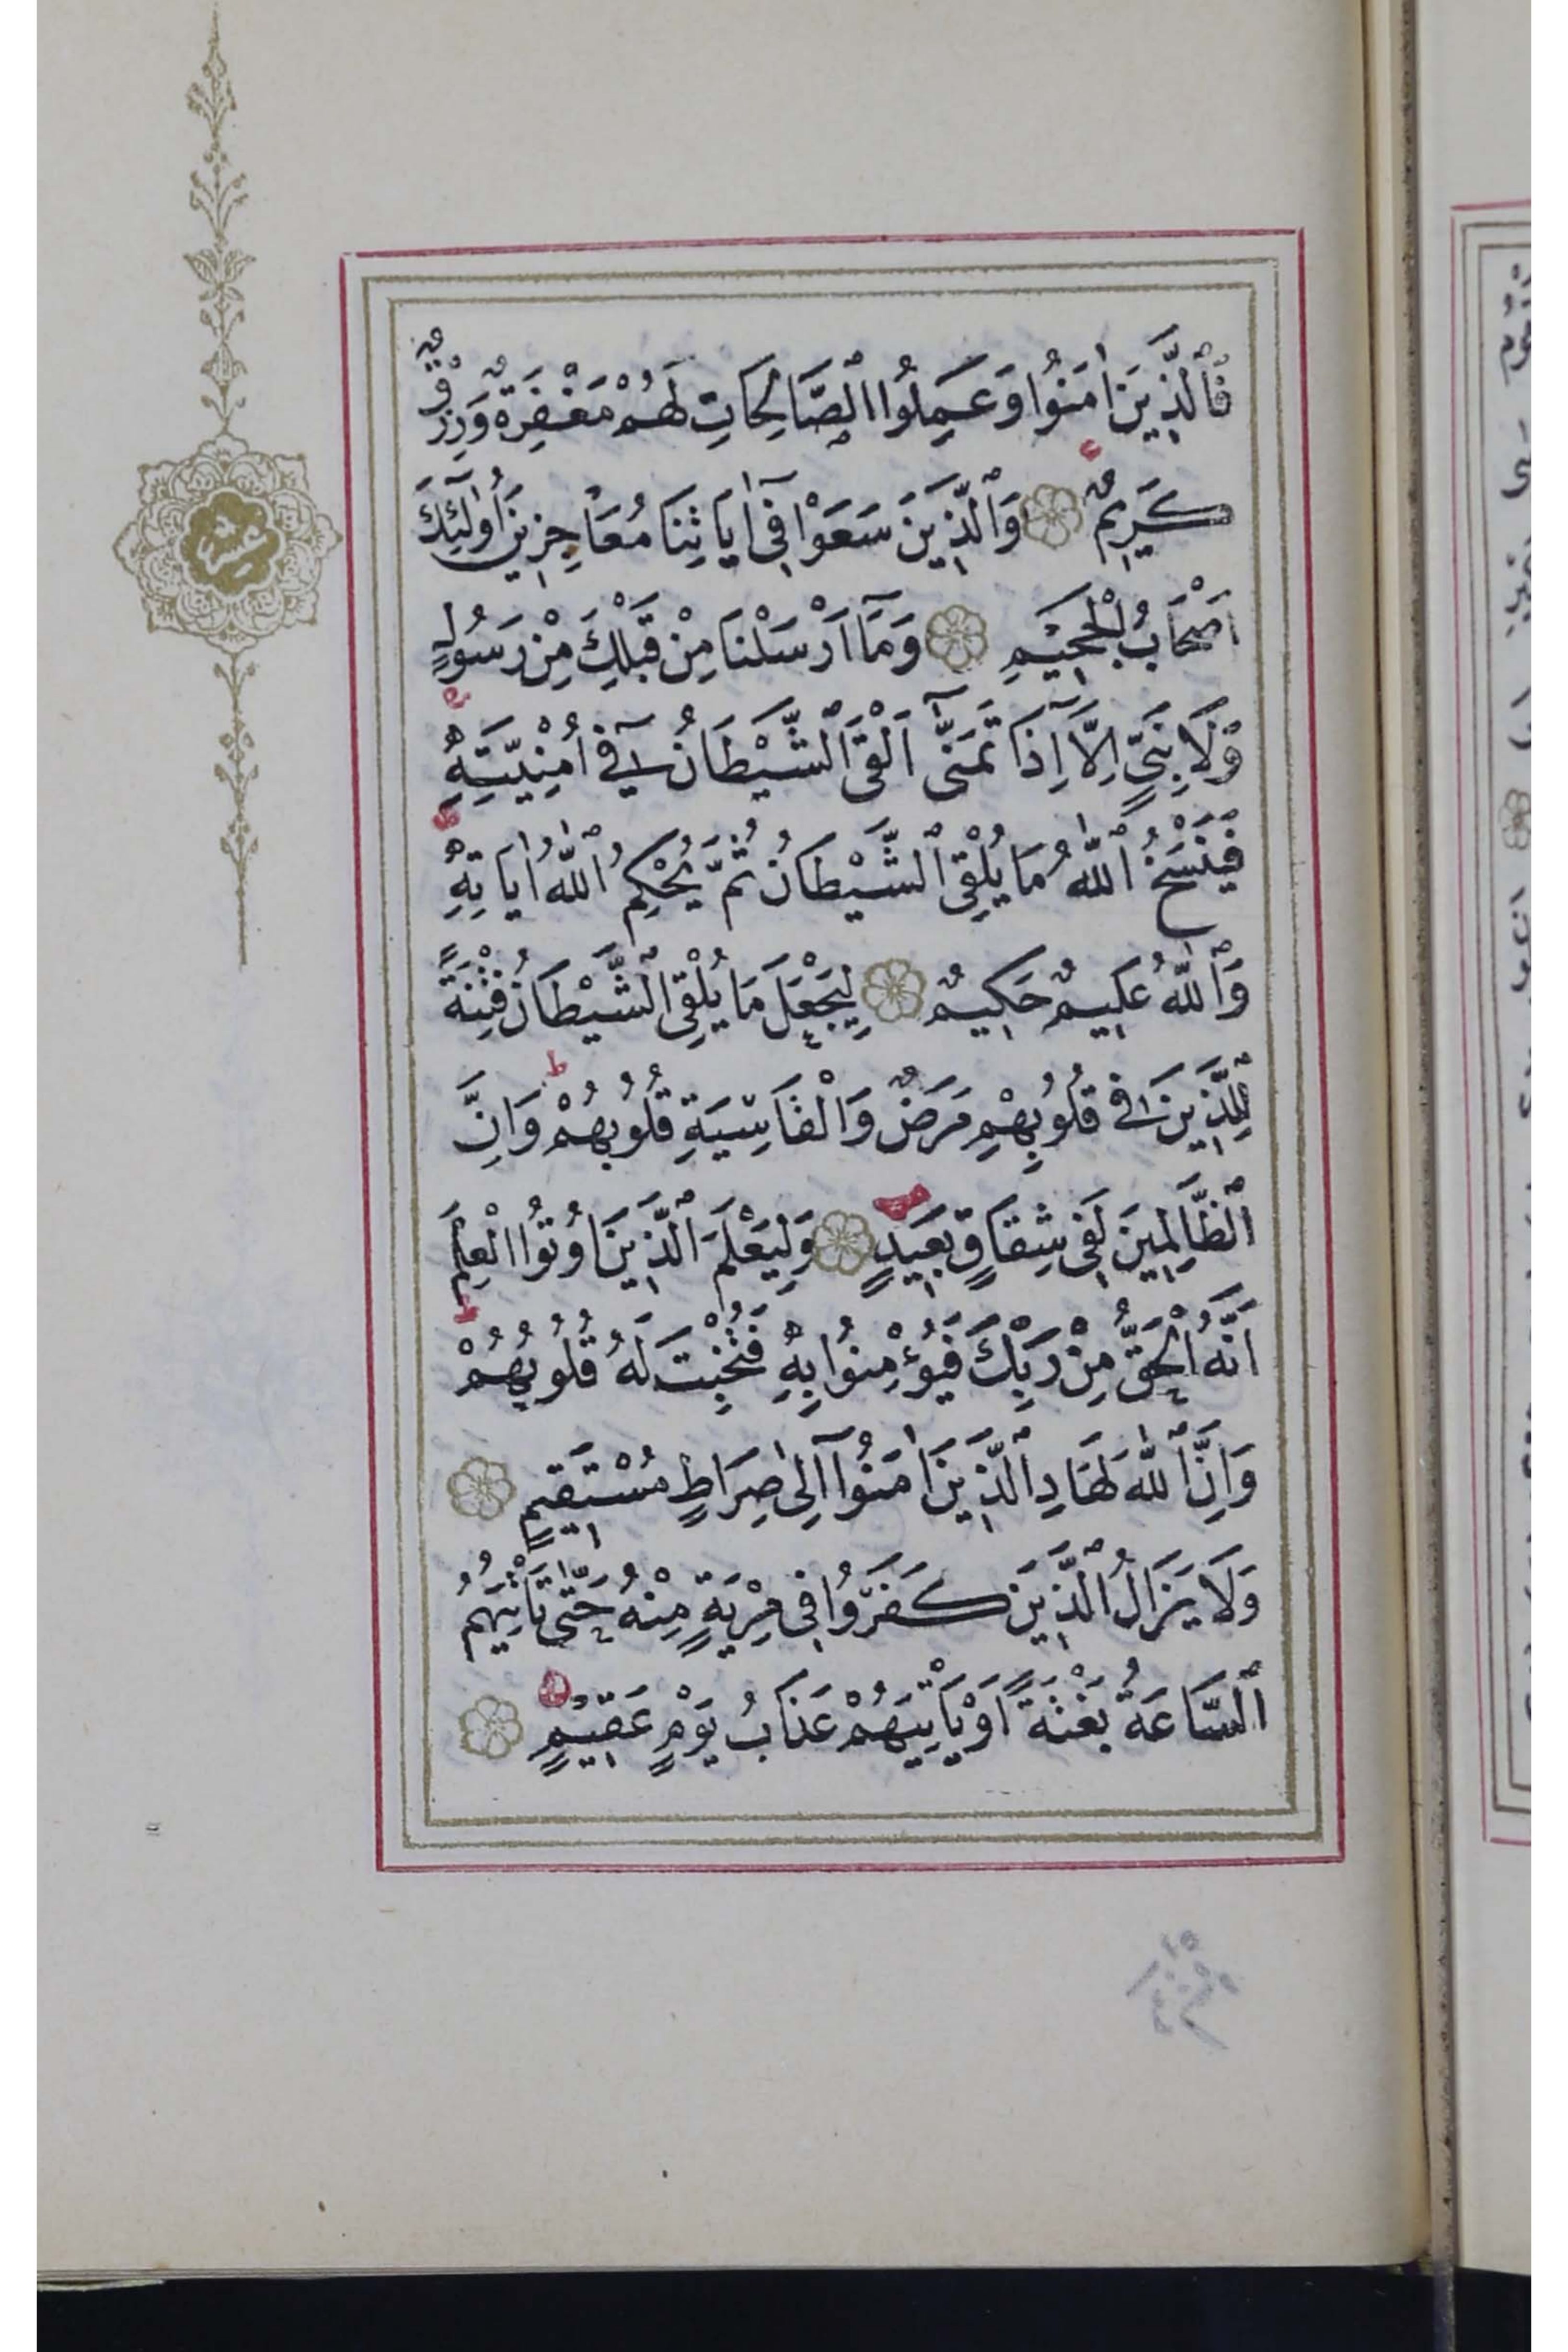 فَٱلَّذِينَ اٰمَنُوا وَعَمِلُوا ٱلصَّالِحَاتِ لَهُمْ مَغْفِرَةٌ وَرِزْقٌ
كَرِيمٌ وَٱلَّذِينَ سَعَوْا فِٓى اٰيَاتِنَا مُعَاجِزِينَ أُولٰٓئِكَ
اَصْحَابُ الْجَحِيمِ وَمَٓا اَرْسَلْنَا مِنْ قَبْلِكَ مِنْ رَسُولٍ
وَلَا نَبِىٍّ اِلَّٓا اِذَا تَمَنّٰٓى اَلْقَى ٱلشَّيْطَانُ فِٓى اُمْنِيَّتِهِ
فَيَنْسَخُ ٱللّٰهُ مَا يُلْقِى ٱلشَّيْطَانُ ثُمَّ يُحْكِمُ ٱللّٰهُ اٰيَاتِهِ
وَٱللّٰهُ عَلِيمٌ حَكِيمٌ لِيَجْعَلَ مَا يُلْقِى ٱلشَّيْطَانُ فِتْنَةً
لِلَّذِينَ فِى قُلُوبِهِمْ مَرَضٌ وَالْقَاسِيَةِ قُلُوبُهُمْ وَاِنَّ
ٱلظَّالِمِينَ لَفِى شِقَاقٍ بَعِيدٍ وَلِيَعْلَمَ ٱلَّذِينَ اُوتُوا الْعِلْمَ
اَنَّهُ الْحَقُّ مِنْ رَبِّكَ فَيُؤْمِنُوا بِهِ فَتُخْبِتَ لَهُ قُلُوبُهُمْ
وَاِنَّ ٱللّٰهَ لَهَادِ ٱلَّذِينَ اٰمَنُٓوا اِلٰى صِرَاطٍ مُسْتَقِيمٍ
وَلَا يَزَالُ ٱلَّذِينَ كَفَرُوا فِى مِرْيَةٍ مِنْهُ حَتّٰى تَأْتِيَهُمُ
ٱلسَّاعَةُ بَغْتَةً اَوْ يَأْتِيَهُمْ عَذَابُ يَوْمٍ عَقِيمٍ